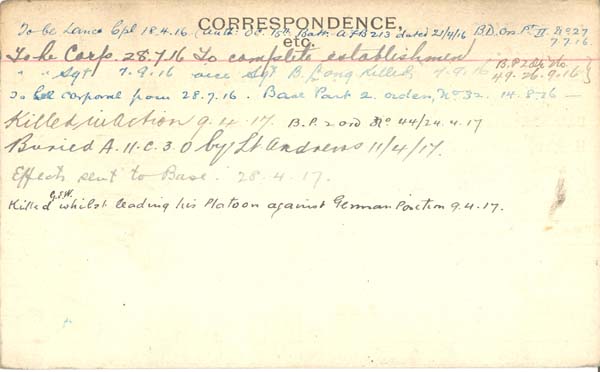 CORRESPONDENCE,
etc.
To be Lance Cpl 18.4.16 (Auth: O.C. Bn. Batt. A.F.B 213 dated 21/4/16 B.D. Ors Pt II No 27
7.7.16
To be Corp. 28.7.16 To complete establishment
" " Sgt 7.9.16 vice Sgt B. Long Killed 7.9.16 B.P.2 No
49. 26.9.16
To be corporal from 28.7.16. Base Part 2 orders, No 32. 14.8.16 —
Killed in Action 9.4.17. B.P. 2 ord No 44/24.4.17
Buried A.11.C.3.0 by Lt Andrews 11/4/17.
Effects sent to Base. 28.4.17.
Killed whilst leading his Platoon against German Position 9.4.17.